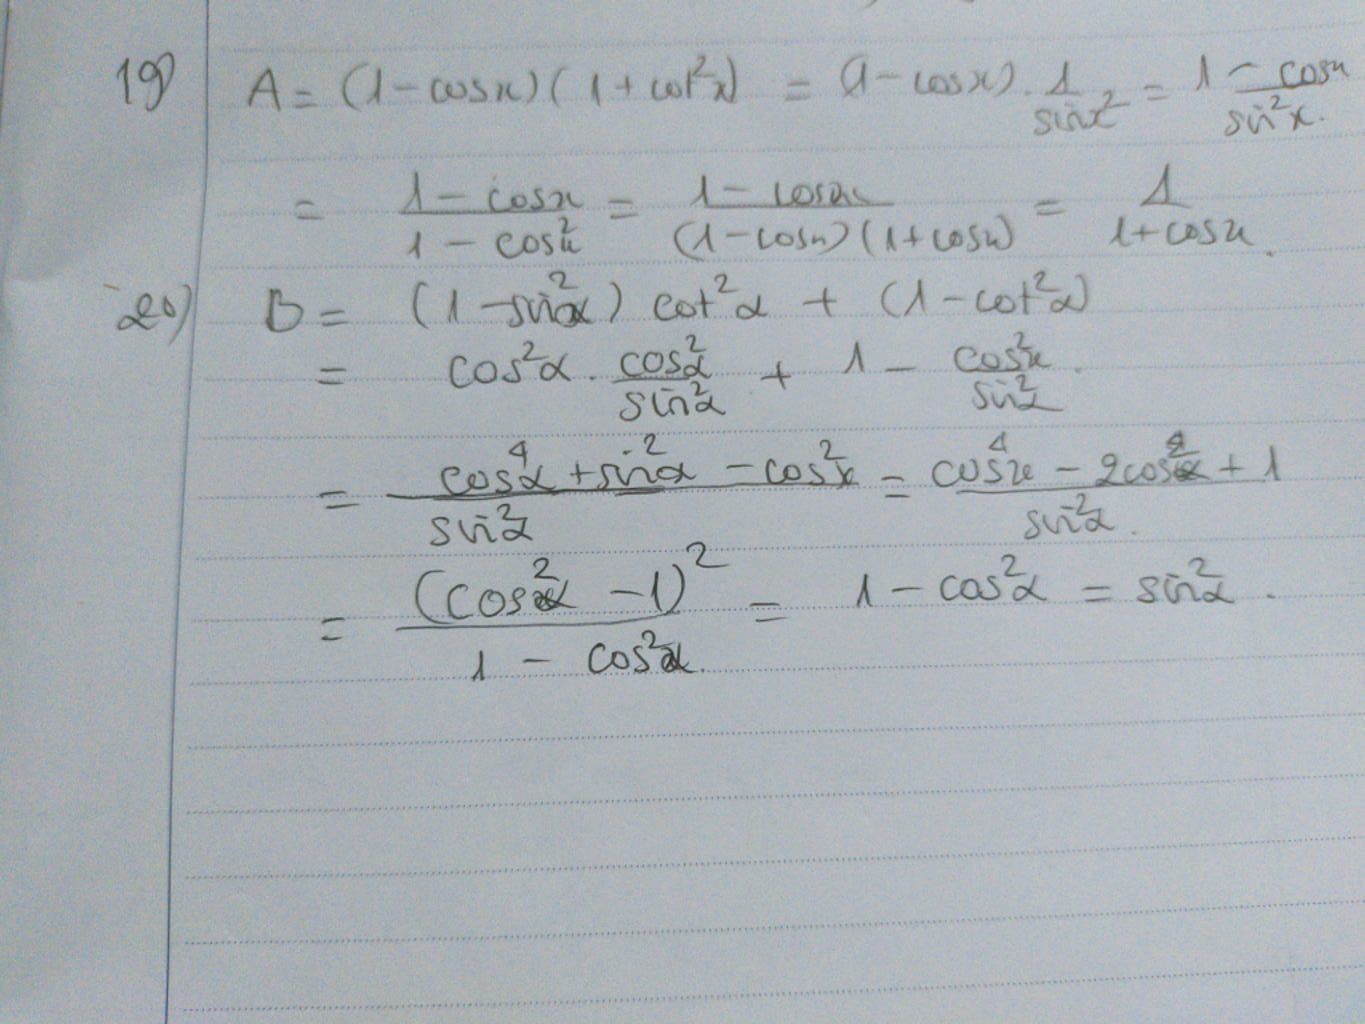 19) A = (1 - cosx)(1 + cot²x) = (1 - cosx) . 1/sinx² = 1 - cosx/sin²x.
= 1 - cosx/1 - cos²x = 1 - cosx/(1 - cosx)(1 + cosx) = 1/1 + cosx.
20) B = (1 - sin²α) cot²α + (1 - cot²α)
= cos²α . cos²α/sin²α + 1 - cos²α/sin²α.
= cos⁴α + sin²α - cos²α/sin²α = cos⁴α - 2cos²α + 1/sin²α.
= (cos²α - 1)²/1 - cos²α. = 1 - cos²α = sin²α.